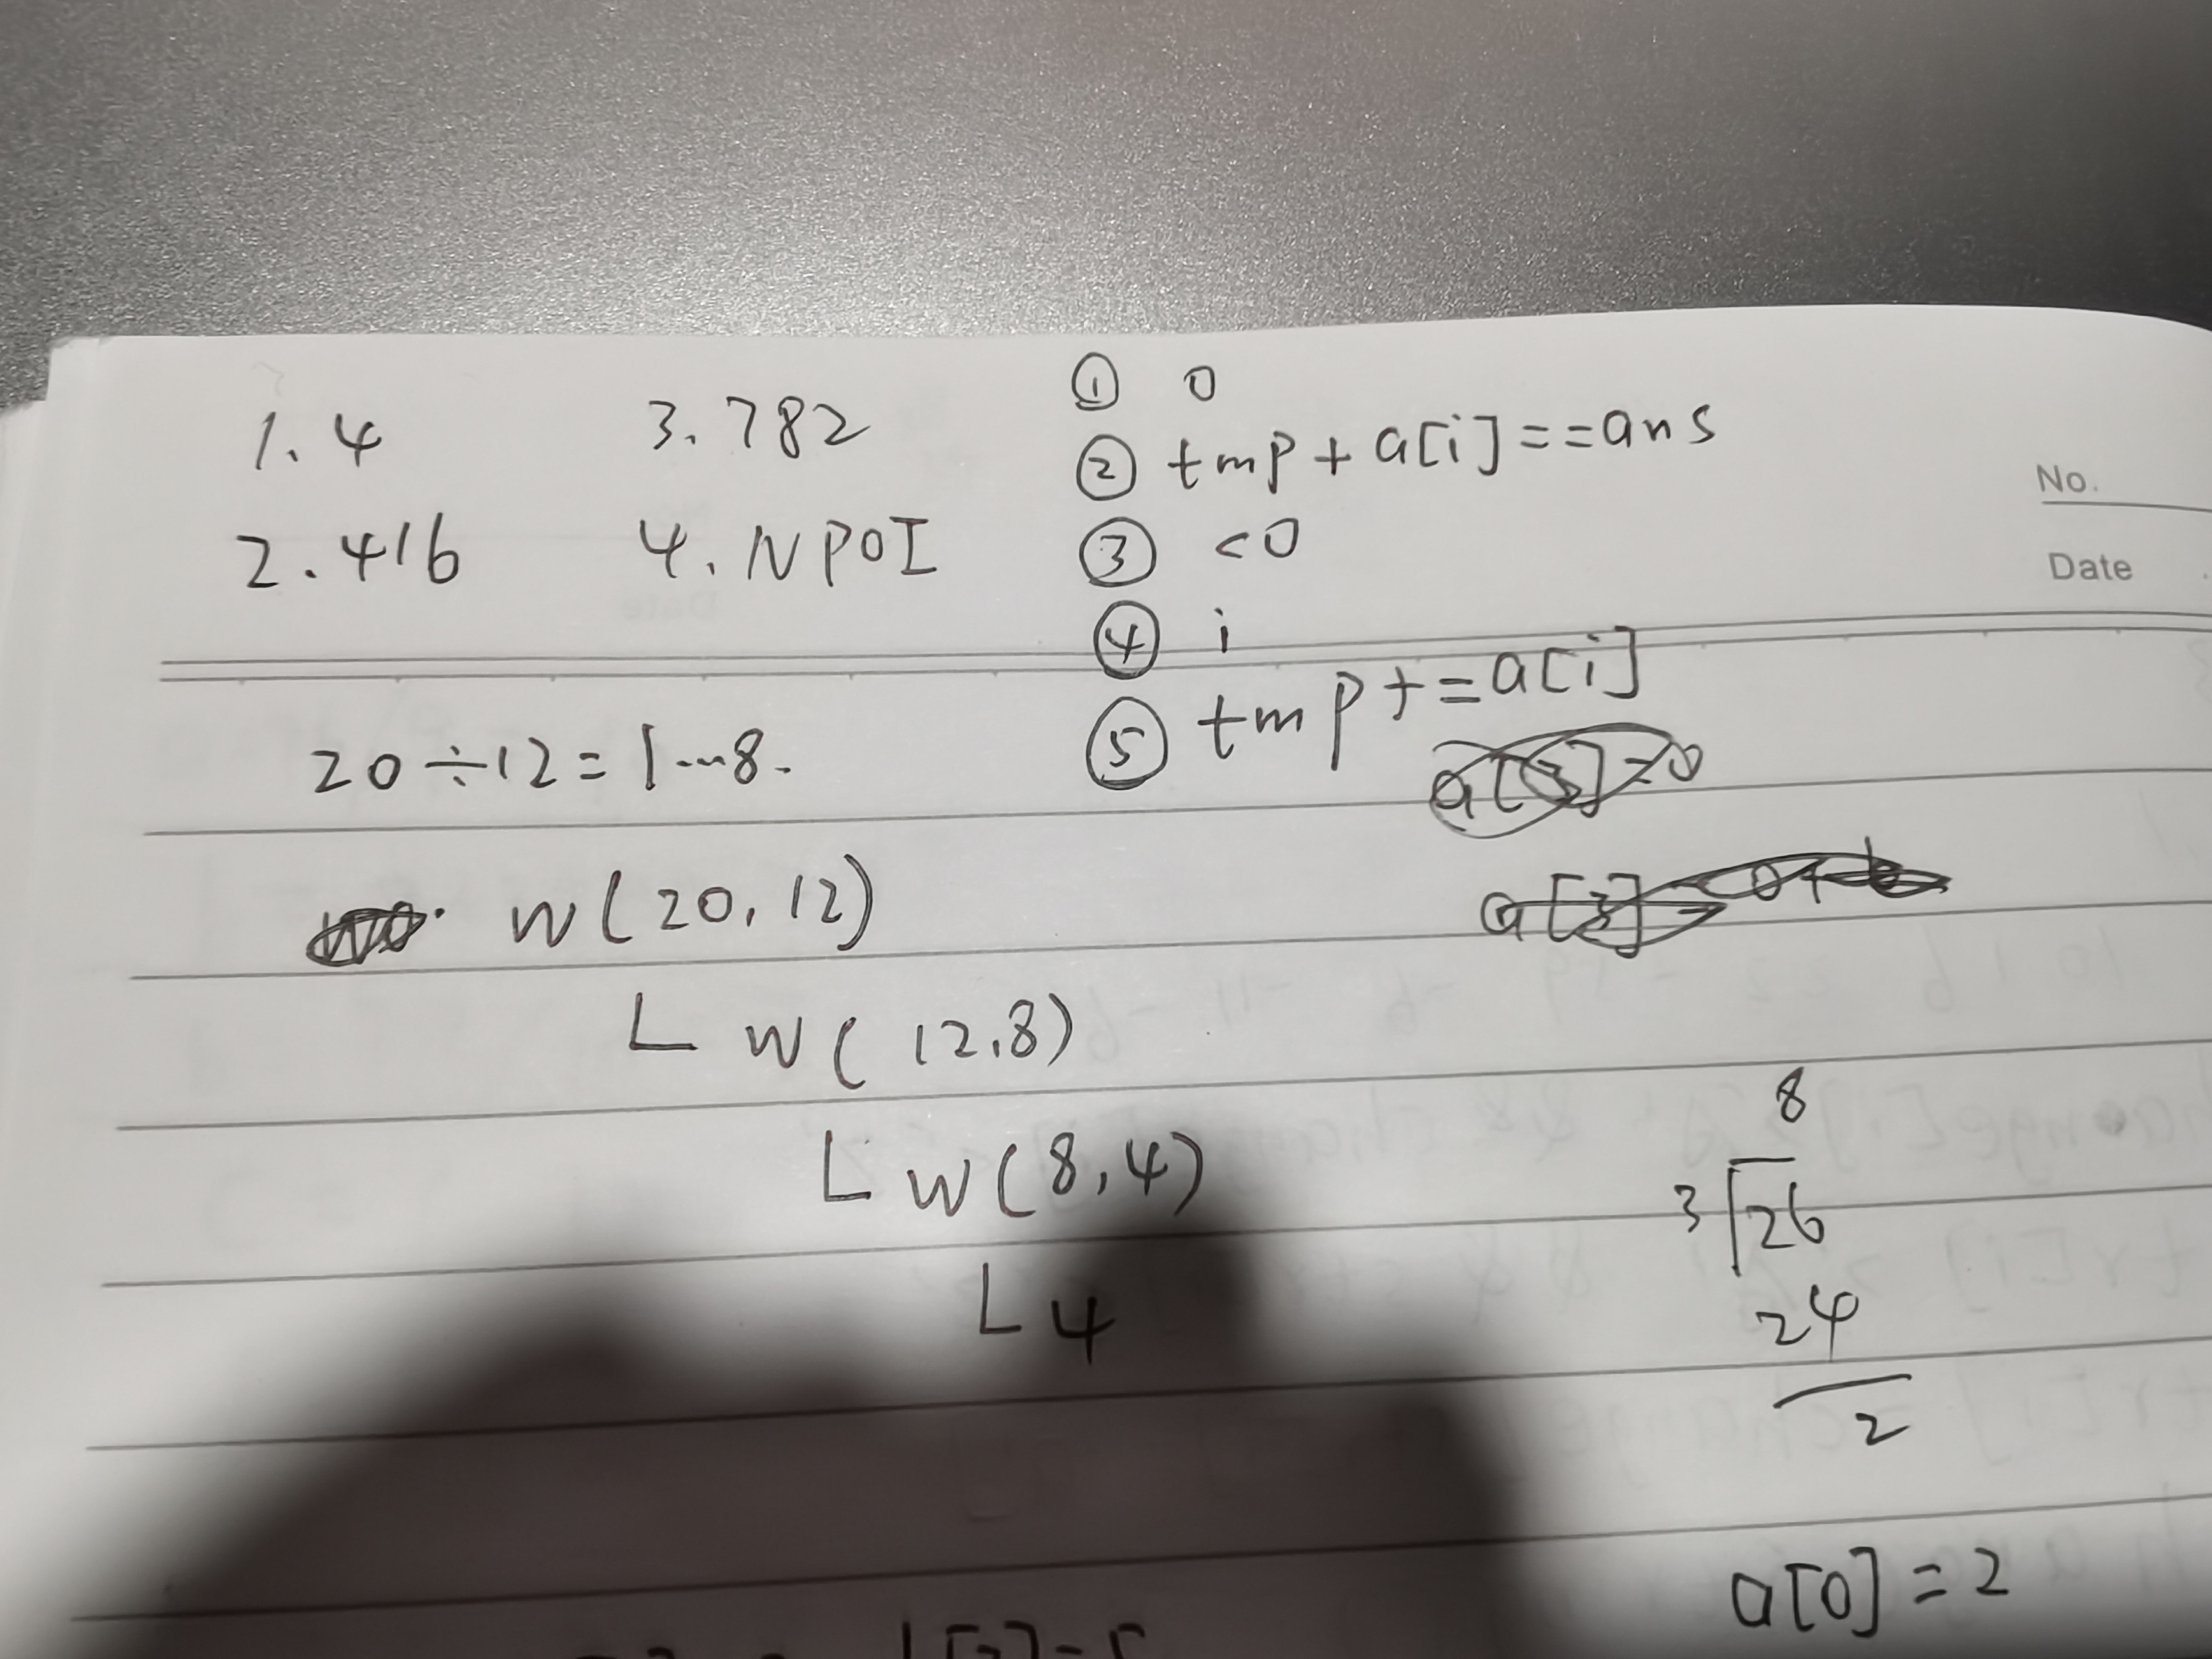 1. 4
2. 416
3. 782
4. NPOI
① 0
② tmp + a[i] == ans
③ <0
④ i
⑤ tmp += a[i]
No.
Date
20 ÷ 12 = 1 … 8.
w(20, 12)
L w(12, 8)
L w(8, 4)
L 4
8
3 26
24
2
a[0] = 2